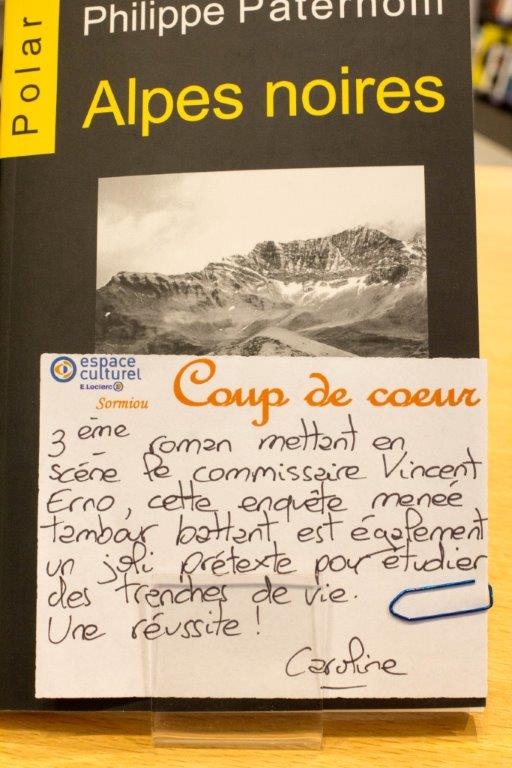 Polar
Philippe Paternolli
Alpes noires
espace
culturel
E.Leclerc
Sormiou
Coup de coeur
3ème roman mettant en
scéne le commissaire Vincent
Erno, cette enquête meneé
tambour battant, est également
un joli prétexte pour étudier
des trenches de vie.
Une réussite !
Caroline